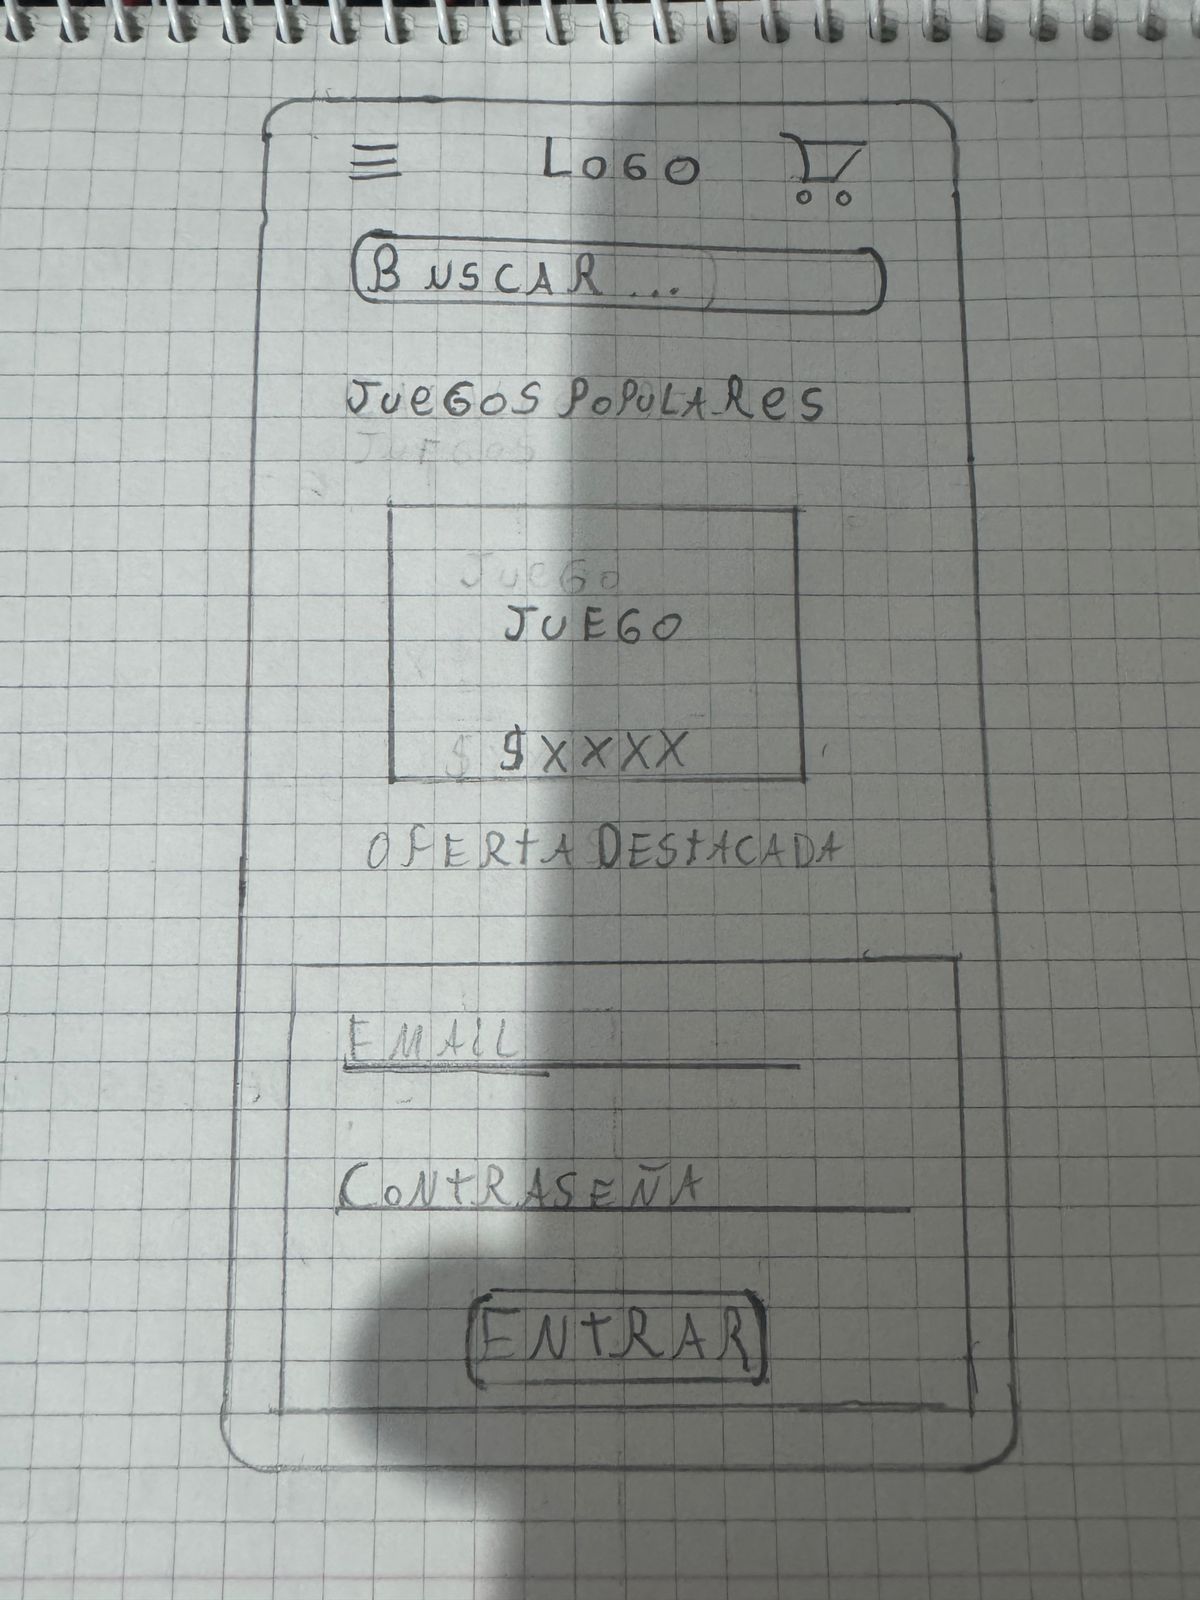 LOGO
BUSCAR...
JUeGOS POPULARes
Juegos
Juego
JUEGO
$
$XXXX
OFERTA DESTACADA
EMAIL
CONTRASEÑA
ENTRAR